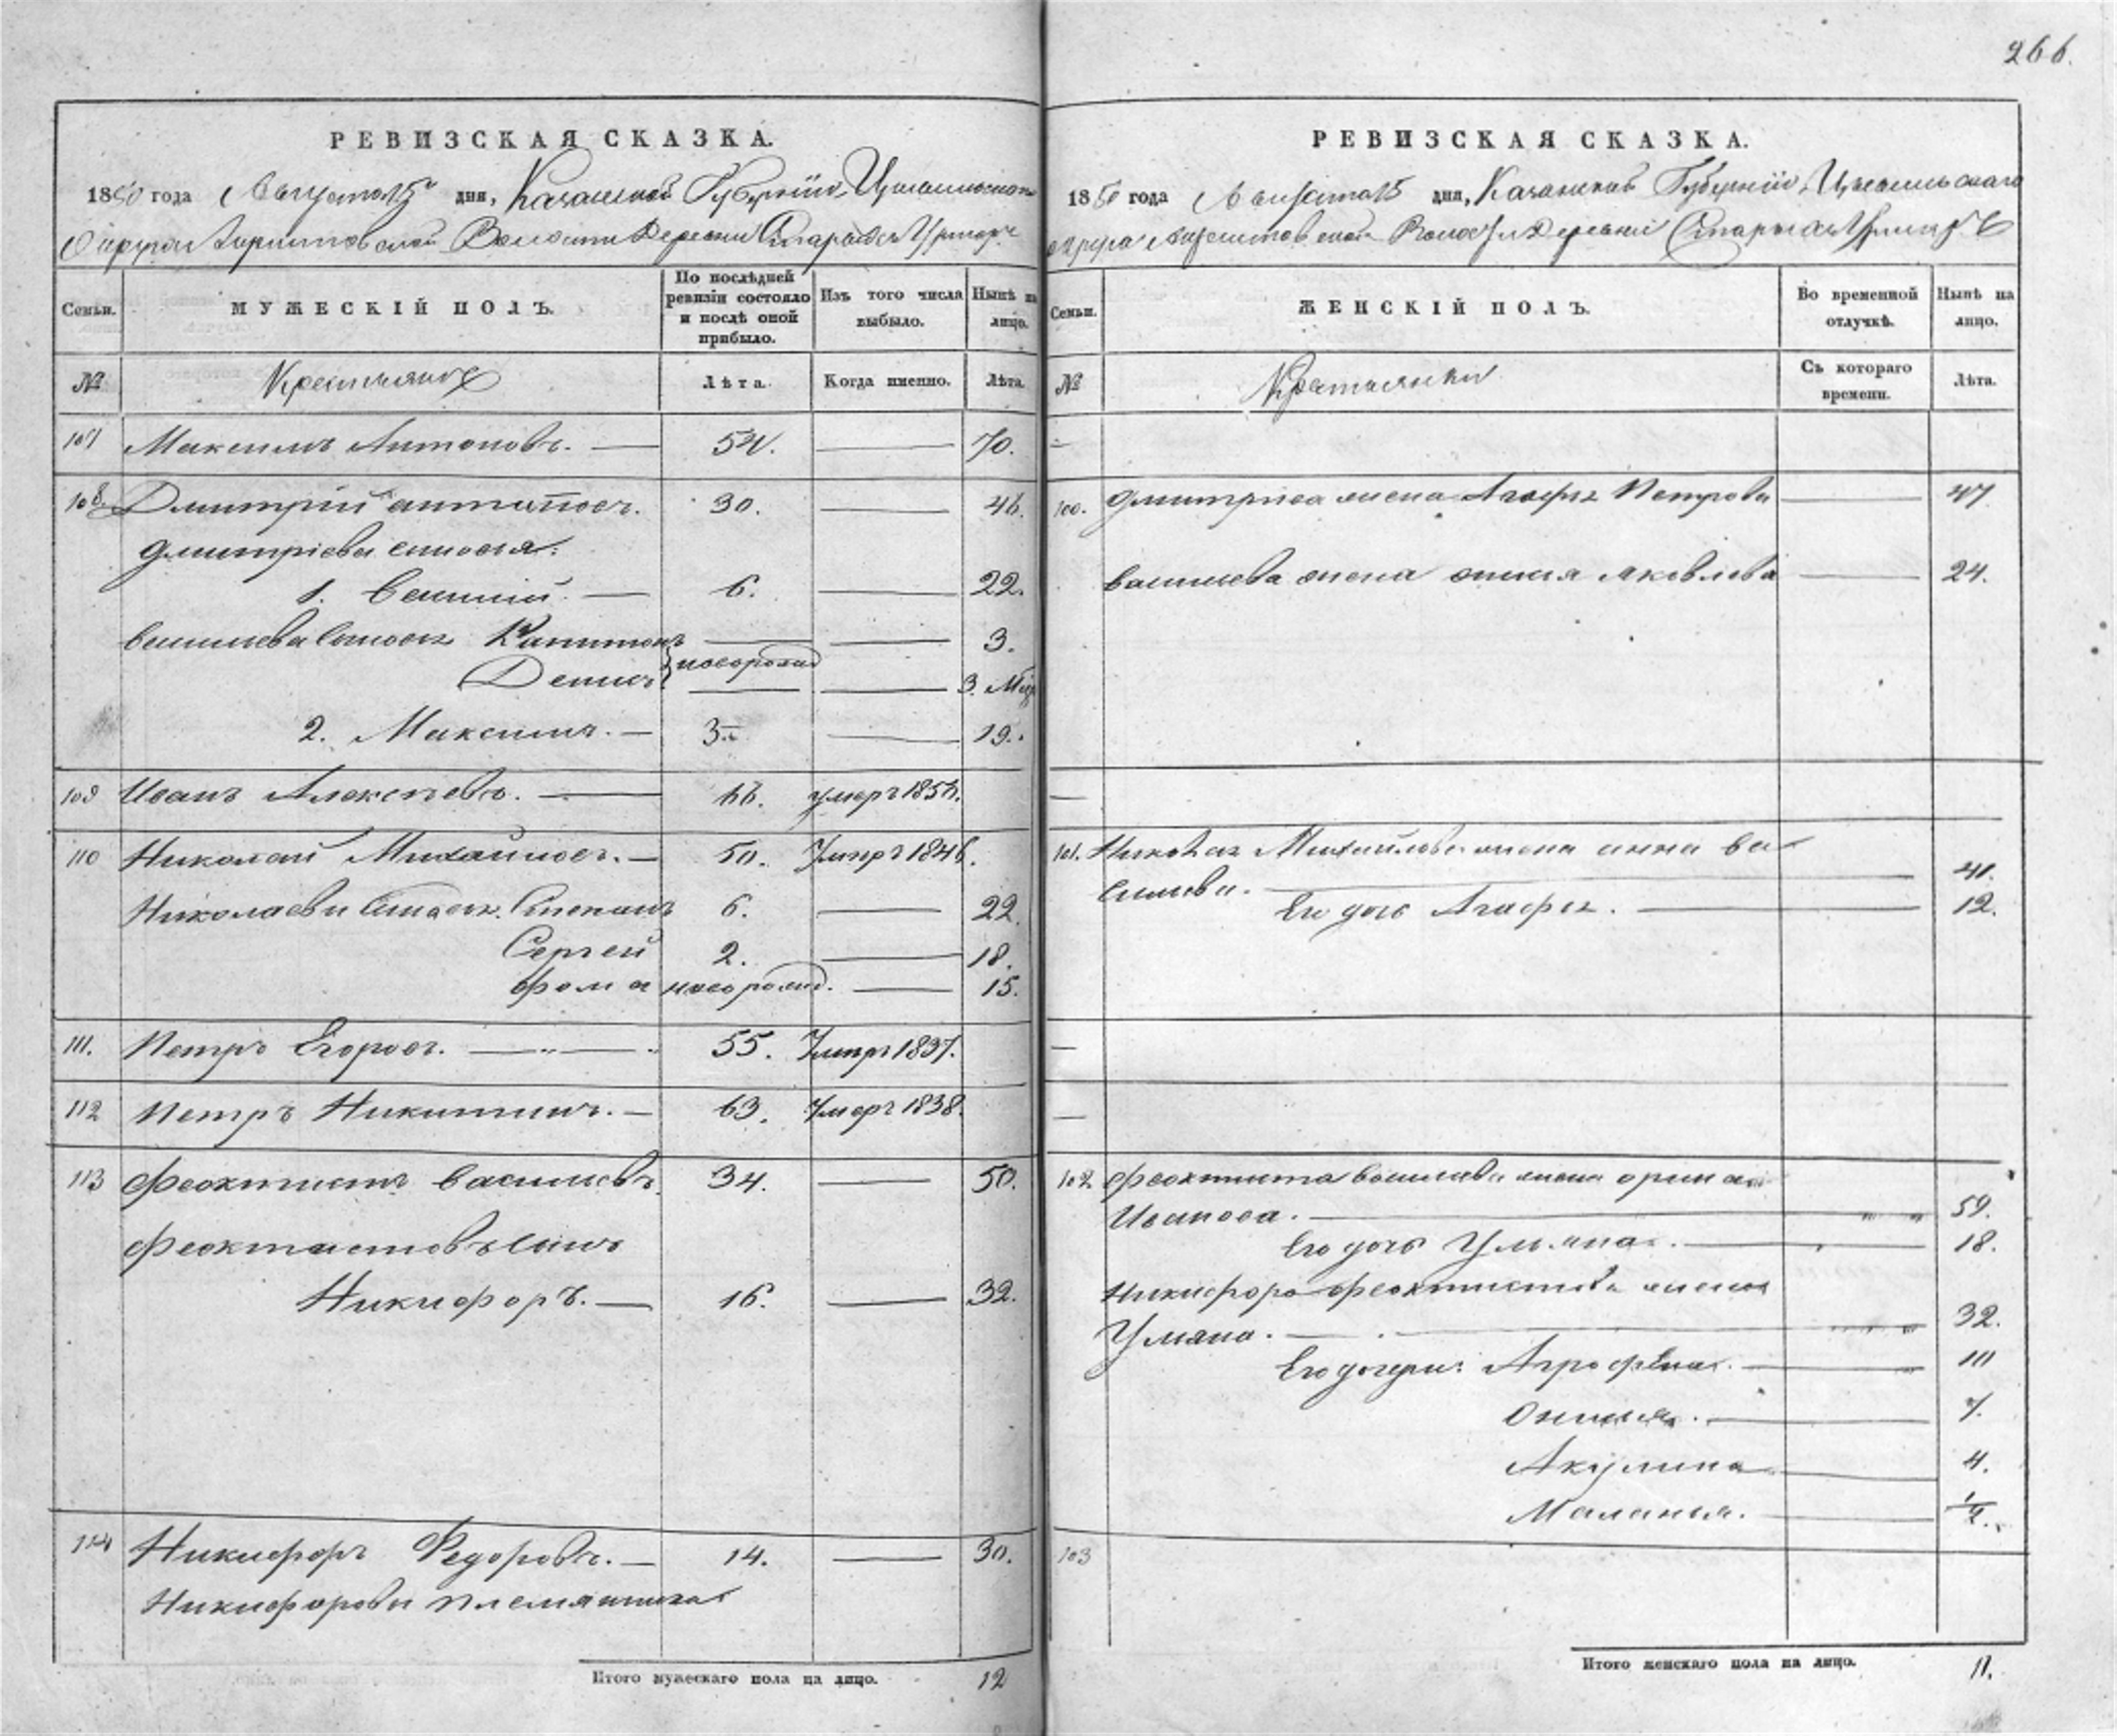 266.
РЕВИЗСКАЯ СКАЗКА.
1850 года Августа 15 дня, Казанской Губерніи, Цивильскаго
Округа Волости Деревни Старыхъ Урмаръ
Семьи.
МУЖЕСКІЙ ПОЛЪ.
По послѣдней ревизіи состояло и послѣ оной прибыло.
Изъ того числа выбыло.
Нынѣ на лицо.
№
Крестьяне
Лѣта.
Когда именно.
Лѣта.
107 Максимъ Антоновъ. — 54. — 70.
108. Дмитрій Антипов. 30. — 46.
Дмитріева сыновья:
1. Василій. — 6. — 22.
Васильева сыновья Капитонъ — — 3.
Денисъ новорожд — 3. Мѣс
2. Максимъ. — 3. — 19.
109 Иванъ Алексѣевъ. — 66. умеръ 1850.
110 Николай Михайлов. — 50. Умеръ 1846.
Николаевы сыновья. Степанъ 6. — 22
Сергей 2. — 18.
Фома новорожд. — 15.
111. Петръ Егоров. — 55. Умеръ 1837.
112 Петръ Никитинъ. — 63. Умеръ 1838.
113 Феоктистъ Васильевъ. 34. — 50.
Феоктистовъ сынъ
Никифоръ. — 16. — 32.
114 Никифоръ Федоровъ. — 14. — 30.
Никифоровы племянники
Итого мужескаго пола на лицо. 12
РЕВИЗСКАЯ СКАЗКА.
1850 года Августа 15 дня, Казанской Губерніи, Цивильскаго
округа Волости Деревни Старыхъ Урмаръ
Семьи.
ЖЕНСКІЙ ПОЛЪ.
Во временной отлучкѣ.
Нынѣ на лицо.
№
Крестьянки
Съ котораго времени.
Лѣта.
—
100. Дмитрiева жена Агафья Петрова — 47
Васильева жена Яковлева — 24.
—
101. Николая Михайлова жена Анна Ва
сильева. — 41.
Его дочь Агафья. — 12.
—
—
102 Феоктиста Васильева жена Орина
Иванова. — 59.
Его дочь Ульяна. — 18.
Никифора Феоктистова жена
Ульяна. — 32.
Его дочери: Агрофена. — 10
Онисья. — 7.
Акулина — 4.
Маланья. — 1/2.
103
Итого женскаго пола на лицо. 11.